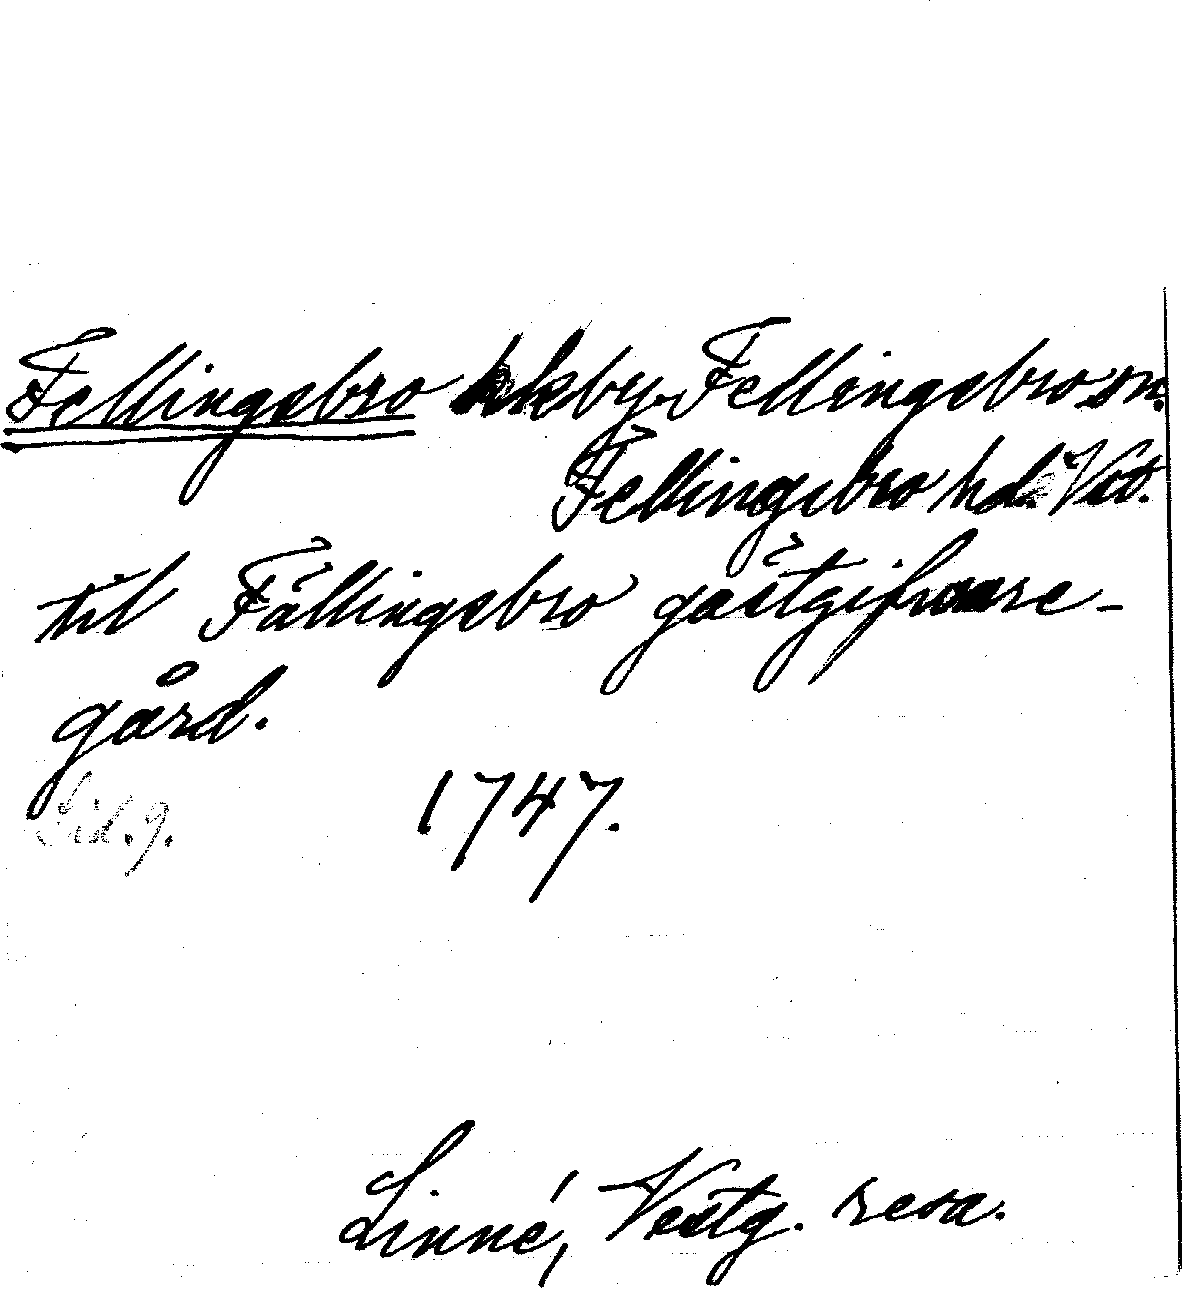 Fellingsbro kkby. Fellingsbro sn.
Fellingsbro hd. Vst.
til Fällingsbro gästgifware-
gård.
Sid. 9. 1747.
Linné, Vestg. resa.